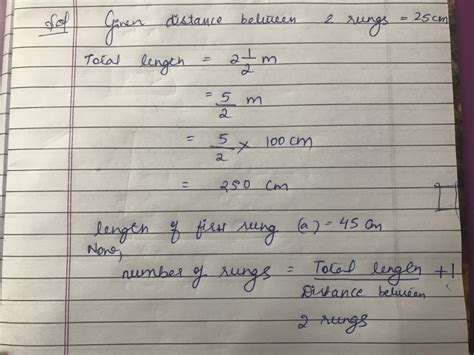 Sol Given distance between 2 rungs = 25cm
Total length = 2 1/2 m
= 5/2 m
= 5/2 × 100 cm
= 250 cm
length of first rung (a) = 45 cm
Now,
number of rungs = Total length / Distance between 2 rungs + 1